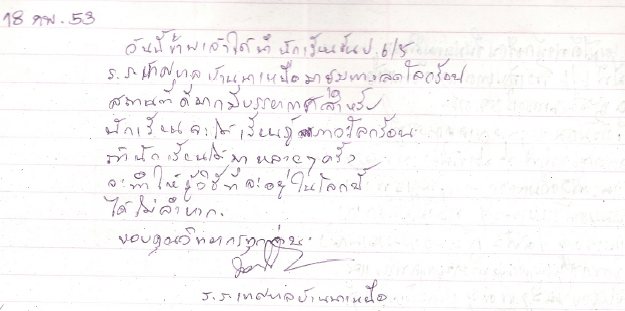 18 กพ. 53
วันนี้ข้าพเจ้าได้นำนักเรียนชั้นป. 6/5
ร.ร.เทศบาลบ้านนาเหนือมาชมทางลดโลกร้อน
สถานที่ดีมากมีบรรยากาศสำหรับ
นักเรียนจะได้เรียนรู้ภาวะโลกร้อน
ถ้านักเรียนได้มาหลายๆครั้ง
จะทำให้รู้วิธีที่จะอยู่ในโลกนี้
ได้ไม่ลำบาก.
ขอบคุณวิทยากรทุกท่าน
ร.ร.เทศบาลบ้านนาเหนือ